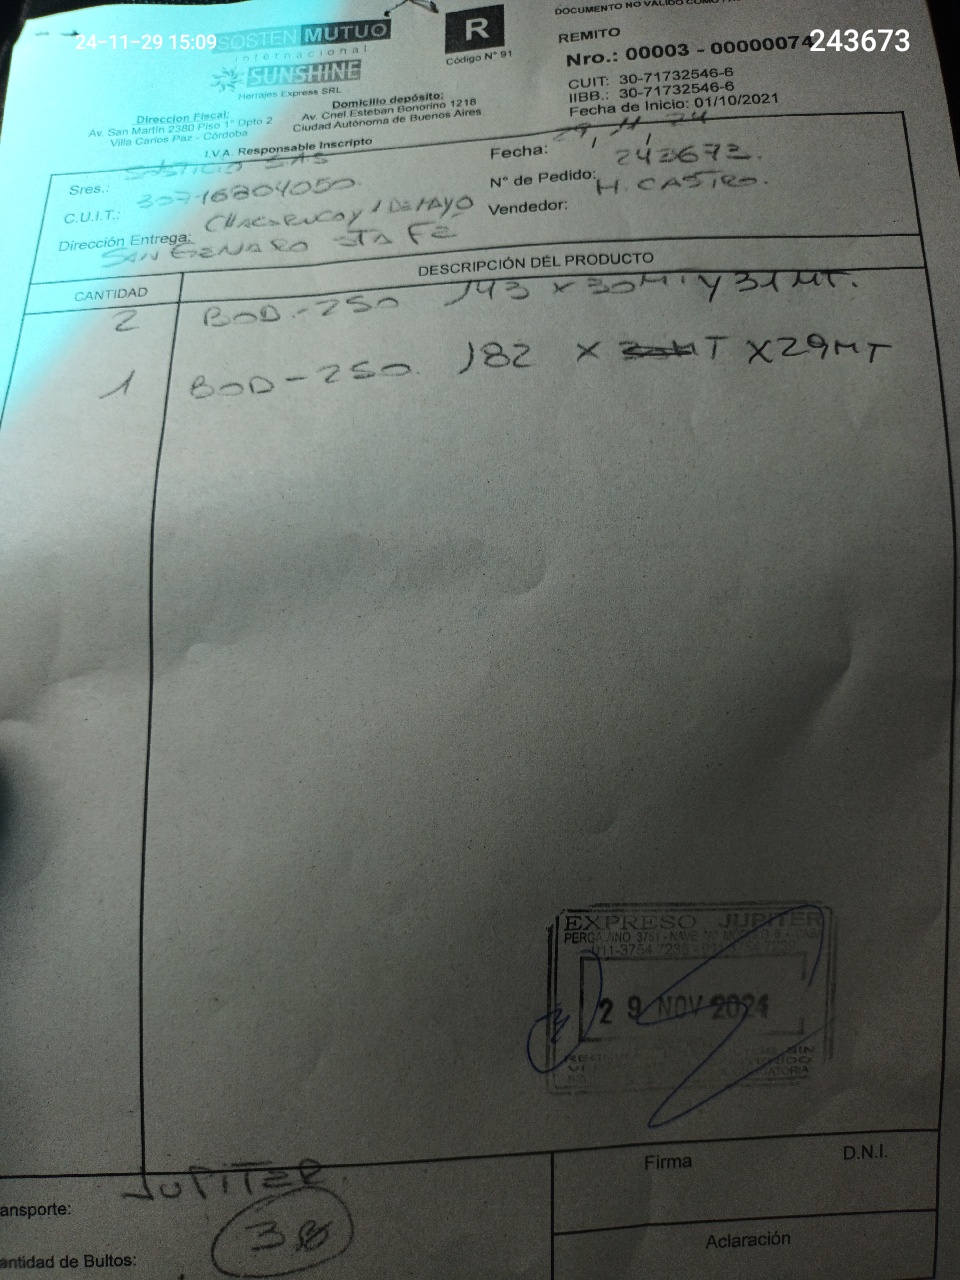 24-11-29 15:09
243673
DOCUMENTO NO VALIDO COMO
SOSTEN MUTUO
internacional
SUNSHINE
Herrajes Express SRL
R
Código N° 91
REMITO
Nro.: 00003 - 00000074
CUIT: 30-71732546-6
IIBB.: 30-71732546-6
Fecha de Inicio: 01/10/2021
Direccion Fiscal:
Av. San Martin 2380 Piso 1° Dpto 2
Villa Carlos Paz - Córdoba
Domicilio depósito:
Av. Cnel.Esteban Bonorino 1218
Ciudad Autónoma de Buenos Aires
I.V.A. Responsable Inscripto
Sres.: SAS
C.U.I.T.: 30716804050
Dirección Entrega: CHACABUCO Y 1 DE MAYO
SAN GENARO STA FE
Fecha: 29 / 11 / 24
N° de Pedido: 243673.
Vendedor: H. CASTRO.
CANTIDAD
DESCRIPCIÓN DEL PRODUCTO
2 BOD-250 143 X 30MT Y 31 MT.
1 BOD-250. 182 X MT X29MT
EXPRESO JUPITER
29 NOV 2024
ansporte: JUPITER
antidad de Bultos: 3
Firma
D.N.I.
Aclaración